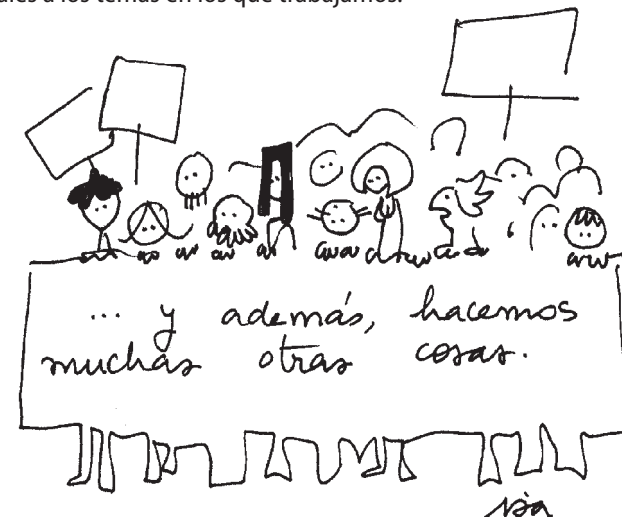 a los temas en los que trabajamos.
... y además, hacemos
muchas otras cosas.